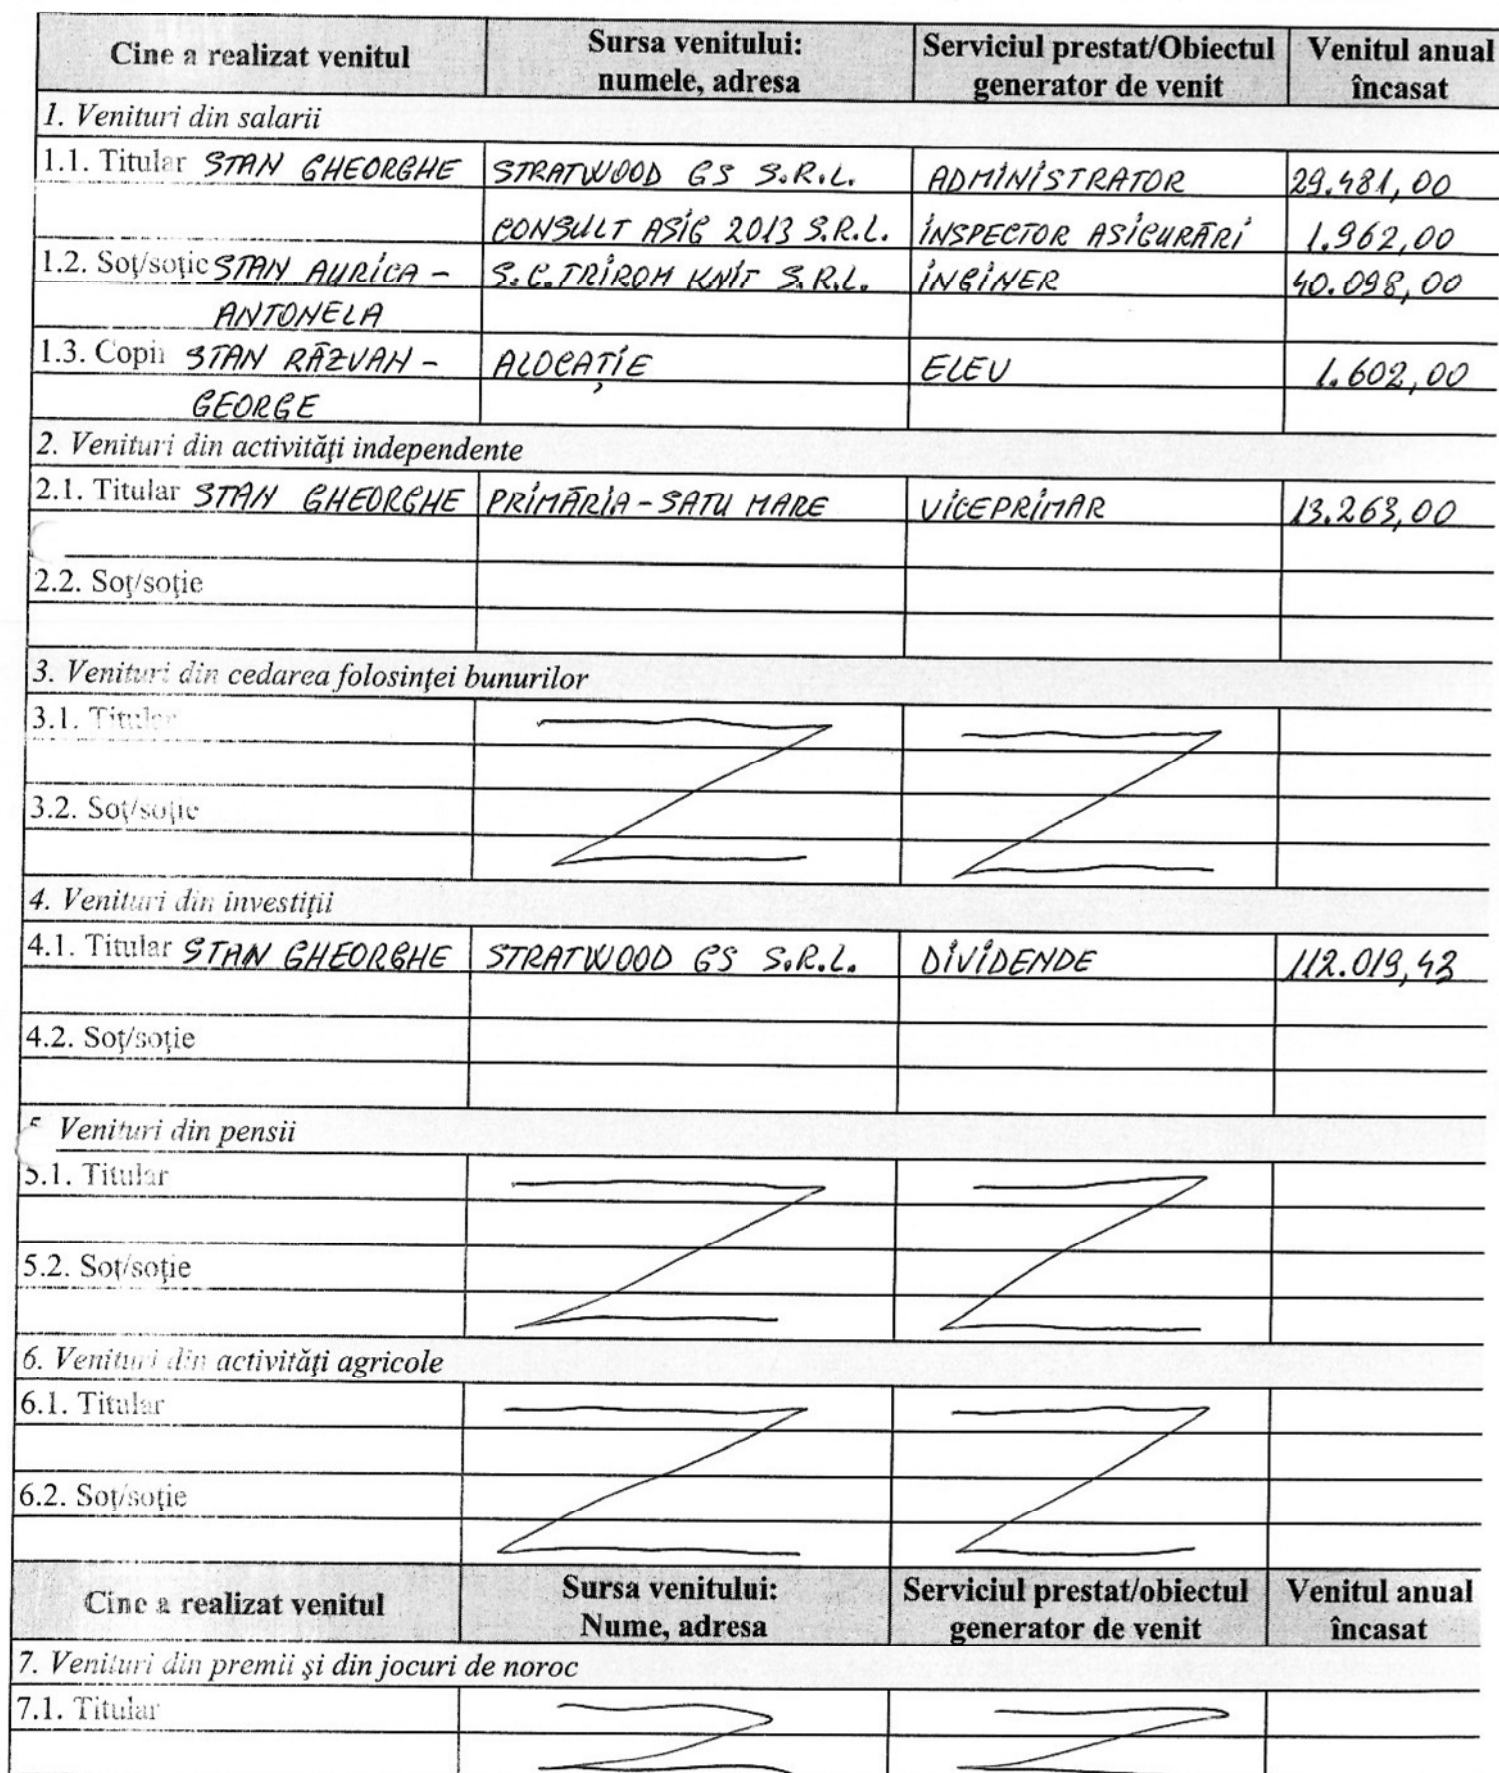 Cine a realizat venitul | Sursa venitului: numele, adresa | Serviciul prestat/Obiectul generator de venit | Venitul anual încasat
1. Venituri din salarii
1.1. Titular STAN GHEORGHE | STRATWOOD GS S.R.L. | ADMINISTRATOR | 29.481,00
CONSULT ASIG 2013 S.R.L. | INSPECTOR ASIGURĂRI | 1.962,00
1.2. Soţ/soţie STAN AURICA - | S.C. TRIROM KNIT S.R.L. | INGINER | 40.098,00
ANTONELA
1.3. Copii STAN RĂZVAN - | ALOCAȚIE | ELEV | 1.602,00
GEORGE
2. Venituri din activităţi independente
2.1. Titular STAN GHEORGHE | PRIMĂRIA - SATU MARE | VICEPRIMAR | 13.263,00
2.2. Soţ/soţie
3. Venituri din cedarea folosinţei bunurilor
3.1. Titular
3.2. Soţ/soţie
4. Venituri din investiţii
4.1. Titular STAN GHEORGHE | STRATWOOD GS S.R.L. | DIVIDENDE | 112.019,43
4.2. Soţ/soţie
5. Venituri din pensii
5.1. Titular
5.2. Soţ/soţie
6. Venituri din activităţi agricole
6.1. Titular
6.2. Soţ/soţie
Cine a realizat venitul | Sursa venitului: Nume, adresa | Serviciul prestat/obiectul generator de venit | Venitul anual încasat
7. Venituri din premii şi din jocuri de noroc
7.1. Titular